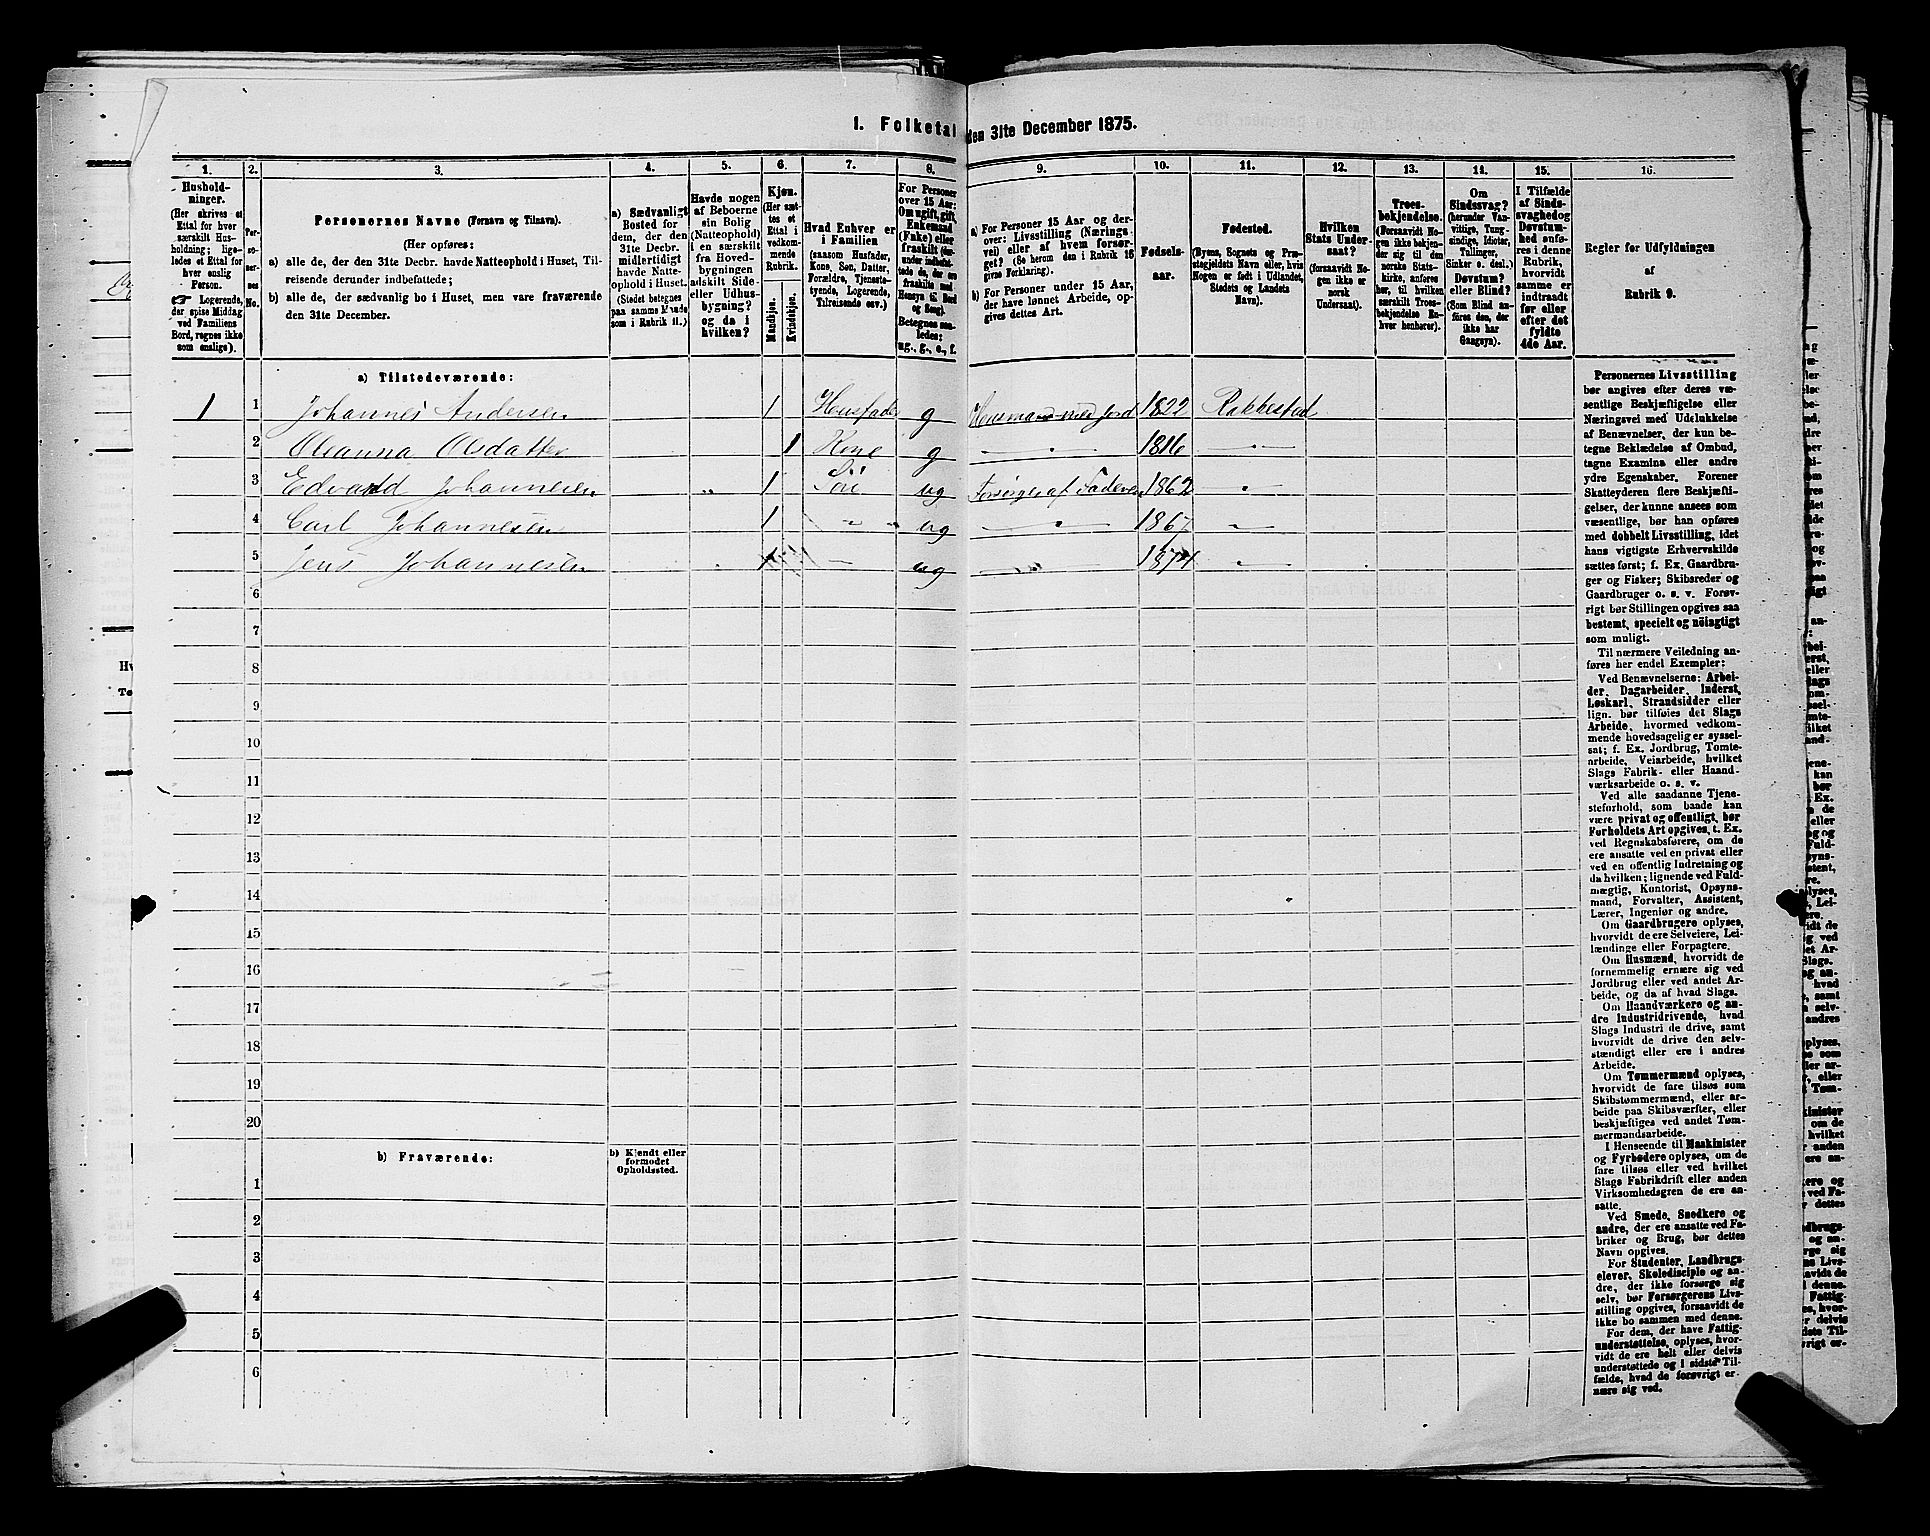 I. Folketal den 31te December 1875.
1. 2. 3. 4. 5. 6. 7. 8. 9. 10. 11. 12. 13. 14. 15. 16.
Hushold-
ninger.
(Her skrives et
Ettal for hver
særskilt Hus-
holdning; lige-
ledes et Ettal for
hver enslig
Person.
☞ Logerende,
der spise Middag
ved Familiens
Bord, regnes ikke
som enslige).
Per-
so-
ner-
nes
No.
Personernes Navne (Fornavn og Tilnavn).
(Her opføres:
a) alle de, der den 31te Decbr. havde Natteophold i Huset, Til-
reisende derunder indbefattede;
b) alle de, der sædvanlig bo i Huset, men vare fraværende
den 31te December.
a) Sædvanligt
Bosted for
dem, der den
31te Decbr.
midlertidigt
havde Natte-
ophold i Huset.
(Stedet betegnes
paa samme Maade
som i Rubrik 11.)
Havde nogen
af Beboerne
sin Bolig
(Natteophold)
i en særskilt
fra Hoved-
bygningen
adskilt Side-
eller Udhus-
bygning?
og da i
hvilken?
Kjøn.
(Her sæt-
tes et
Ettal i
vedkom-
mende
Rubrik.
Mandkjøn.
Kvindekjøn.
Hvad Enhver er
i Familien
(saasom Husfader,
Kone, Søn, Datter,
Forældre, Tjeneste-
tyende, Logerende,
Tilreisende osv.)
For Personer
over 15 Aar:
Om ugift, gift,
Enkemand
(Enke) eller
fraskilt (der-
under indbefat-
tede de, der ere
fraskilte med
Hensyn til Bord
og Seng).
Betegnes saa-
ledes:
ug., g., e., f.
a) For Personer 15 Aar og der-
over: Livsstilling (Nærings-
vei) eller af hvem forsør-
get? (Se herom den i Rubrik 16
givne Forklaring).
b) For Personer under 15 Aar,
der have lønnet Arbeide, op-
gives dettes Art.
Fødsels-
aar.
Fødested.
(Byens, Sognets og Præ-
stegjeldets Navn eller, hvis
Nogen er født i Udlandet,
Stedets og Landets
Navn).
Hvilken
Stats Under-
saat?
(forsaavidt No-
gen ikke er
norsk
Undersaat).
Troes-
bekjendelse.
(Forsaavidt No-
gen ikke bekjen-
der sig til den
norske Stats-
kirke, anføres
her, til hvilken
særskilt Troes-
bekjendelse En-
hver henhører).
Om
Sindssvag?
(herunder Van-
vittige, Tung-
sindige, Idioter,
Tullinger,
Sinker o. desl.)
Døvstum?
eller Blind?
(Som Blind an-
føres den, der
ikke har
Gangsyn).
I Tilfælde
af Sinds-
svaghed og
Døvstum-
hed anfø-
res i denne
Rubrik,
hvorvidt
samme er
indtraadt
før eller
efter det
fyldte
4de Aar.
Regler for Udfyldningen
af
Rubrik 9.
a) Tilstedeværende:
1 1 Johannes Andersen 1 Husfader g Husmand med Jord 1822 Rakkestad
2 Oleanna Olsdatter 1 Kone g 〃 1816 〃
3 Edvard Johannesen 〃 1 Søn ug Forsørges af Faderen 1862 〃
4 Carl Johannesen 1 〃 ug 〃 1867 〃
5 Jens Johannesen 1 〃 ug 〃 1874 〃
6
7
8
9
10
11
12
13
14
15
16
17
18
19
20
b) Fraværende:
b) Kjendt eller
formodet
Opholdssted.
1
2
3
4
5
6
Personernes Livsstilling
bør angives efter deres væ-
sentlige Beskjæftigelse eller
Næringsvei med Udelukkelse
af Benævnelser, der kun be-
tegne Beklædelse af Ombud,
tagne Examina eller andre
ydre Egenskaber. Forener
Skatteyderen flere Beskjæfti-
gelser, der kunne ansees som
væsentlige, bør han opføres
med dobbelt Livsstilling, idet
hans vigtigste Erhvervskilde
sættes først; f. Ex. Gaardbru-
ger og Fisker; Skibsreder og
Gaardbruger o. s. v. Forøv-
rigt bør Stillingen opgives saa
bestemt, specielt og nöiagtigt
som muligt.
Til nærmere Veiledning an-
føres her endel Exempler:
Ved Benævnelserne: Arbei-
der, Dagarbeider, Inderst,
Løskarl, Strandsidder eller
lign. bør tilføies det Slags
Arbeide, hvormed vedkom-
mende hovedsagelig er syssel-
sat; f. Ex. Jordbrug, Tomte-
arbeide, Veiarbeide, hvilket
Slags Fabrik- eller Haand-
værksarbeide o. s. v.
Ved alle saadanne Tjene-
steforhold, som baade kan
være privat og offentligt, bør
Forholdets Art opgives, t. Ex.
ved Regnskabsførere, om de
ere ansatte ved en privat eller
ved en offentlig Indretning og
da hvilken; lignende ved Fuld-
mægtig, Kontorist, Opsyns-
mand, Forvalter, Assistent,
Lærer, Ingeniør og andre.
Om Gaardbrugere oplyses,
hvorvidt de ere Selveiere, Lei-
lændinge eller Forpagtere.
Om Husmænd, hvorvidt de
fornemmelig ernære sig ved
Jordbrug eller ved andet Ar-
beide, og da af hvad Slags.
Om Haandværkere og an-
dre Industridrivende, hvad
Slags Industri de drive, samt
hvorvidt de drive den selv-
stændigt eller ere i andres
Arbeide.
Om Tømmermænd oplyses,
hvorvidt de fare tilsøs som
Skibstømmermænd, eller ar-
beide paa Skibsværfter, eller
beskjæftiges ved andet Tøm-
mermandsarbeide.
I Henseende til Maskinister
og Fyrbødere oplyses, om de
fare tilsøs eller ved hvilket
Slags Fabrikdrift eller anden
Virksomhedsgren de ere an-
satte.
Ved Smede, Snedkere og
andre, der ere ansatte ved Fa-
briker og Brug, bør dettes
Navn opgives.
For Studenter, Landbrugs-
elever, Skoledisciple og an-
dre, der ikke forsørge sig
selv, bør Forsørgerens Livs-
stilling opgives, forsaavidt de
ikke bo sammen med denne.
For dem, der have Fattig-
understøttelse, oplyses, hvor-
vidt de ere helt eller delvis
understøttede og i sidste Til-
fælde, hvad de forøvrigt er-
nære sig ved.